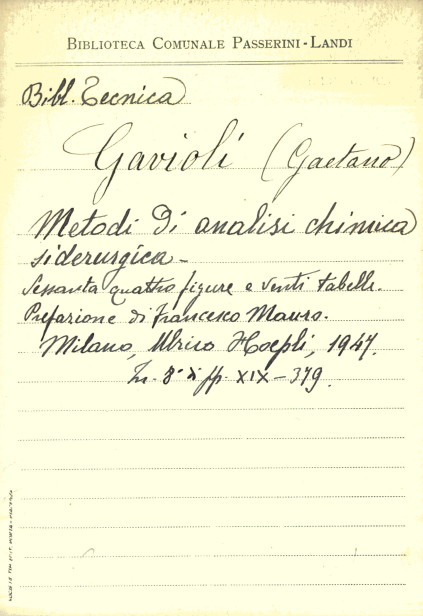 BIBLIOTECA COMUNALE PASSERINI-LANDI
Bibl. Tecnica
Gavioli (Gaetano)
Metodi di analisi chimica
siderurgica -
Sessanta quattro figure e venti tabelle.
Prefazione di Francesco Mauro.
Milano, Ulrico Hoepli, 1947.
In. 8° di pp. XIX - 379.